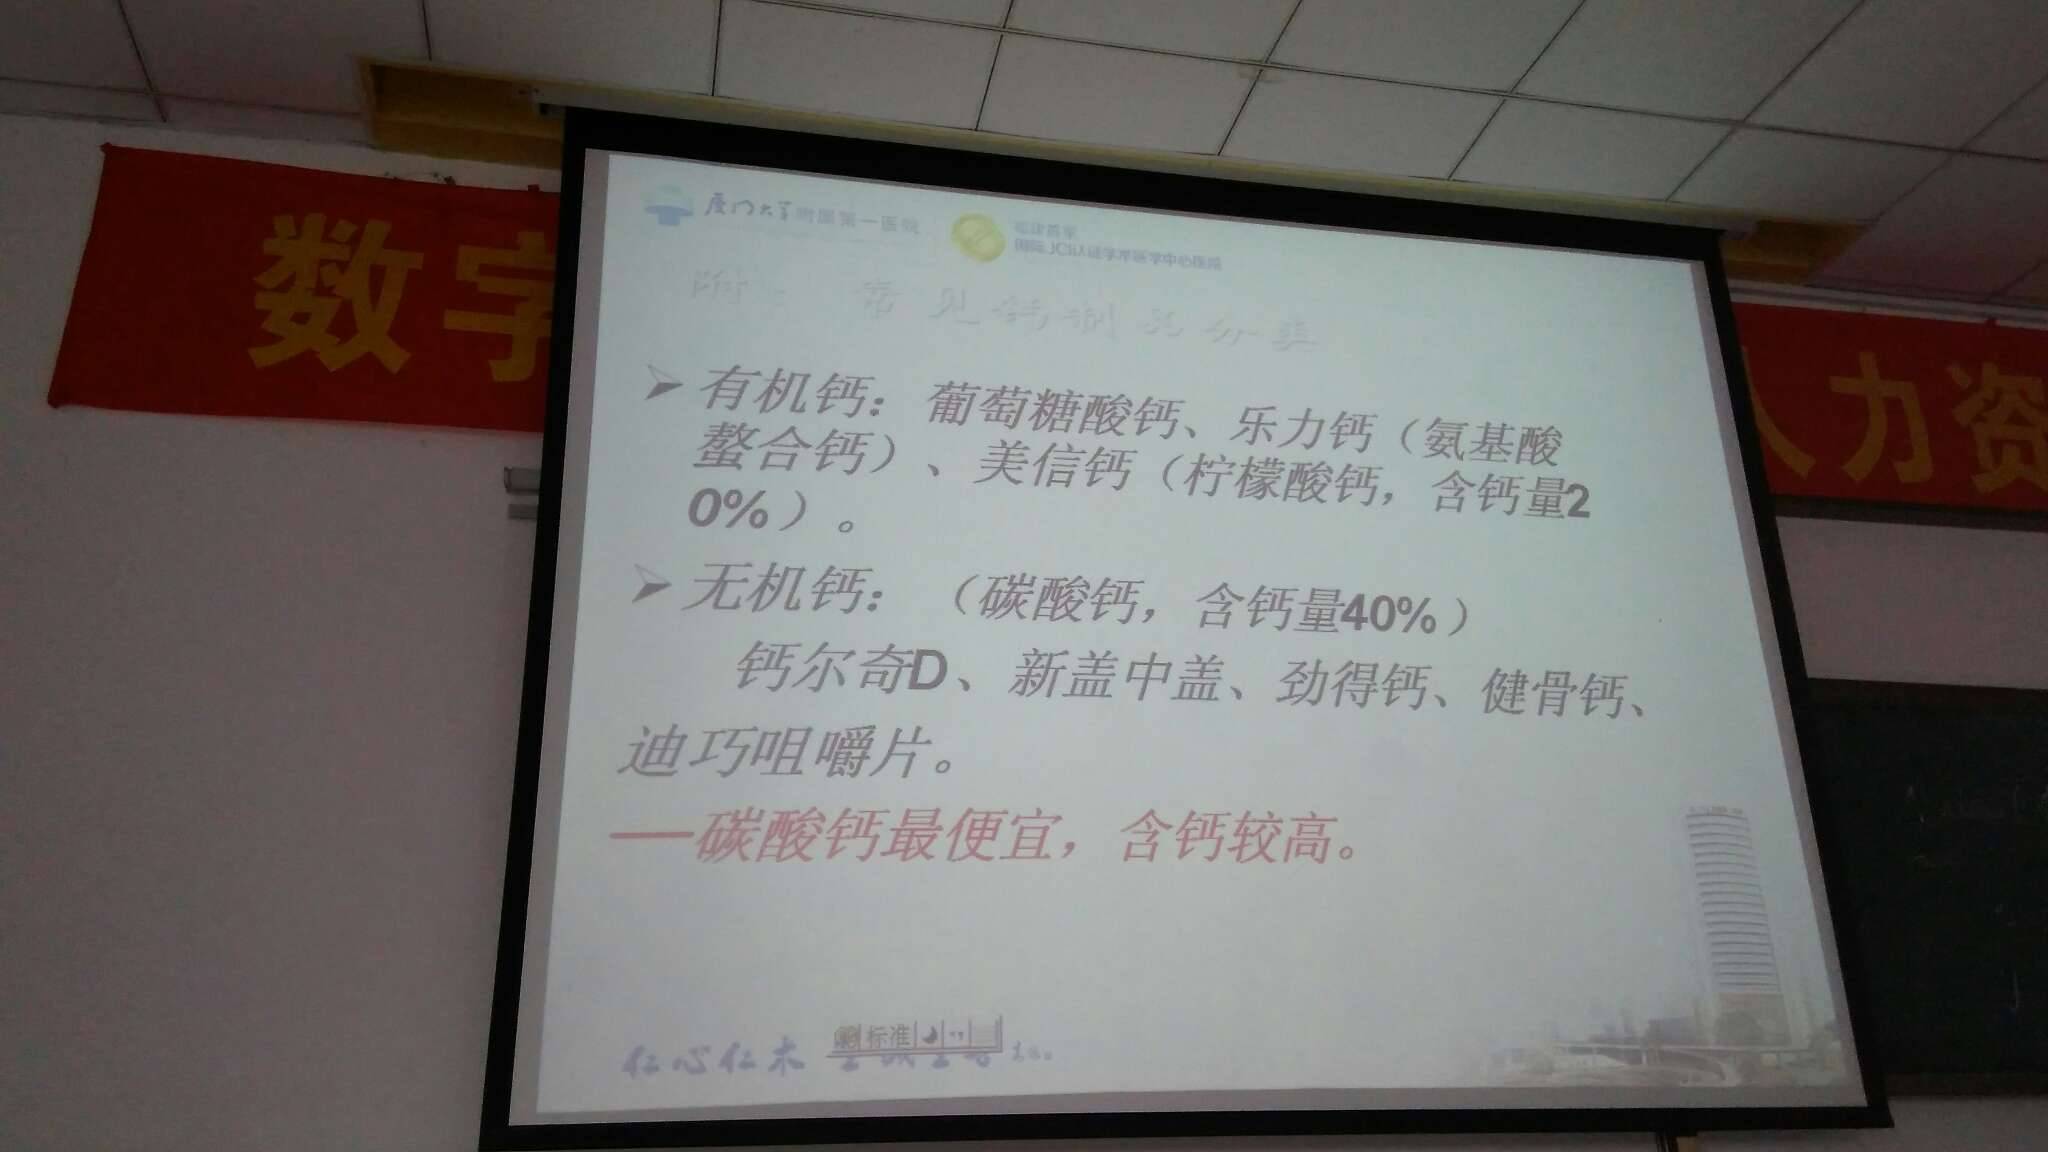 数字
人力资
厦门大学附属第一医院
福建首家
国际JCI认证学术医学中心医院
附：常见钙制剂分类
➢有机钙：葡萄糖酸钙、乐力钙（氨基酸
螯合钙）、美信钙（柠檬酸钙，含钙量2
0%）。
➢无机钙：（碳酸钙，含钙量40%）
钙尔奇D、新盖中盖、劲得钙、健骨钙、
迪巧咀嚼片。
—碳酸钙最便宜，含钙较高。
仁心仁术
标准